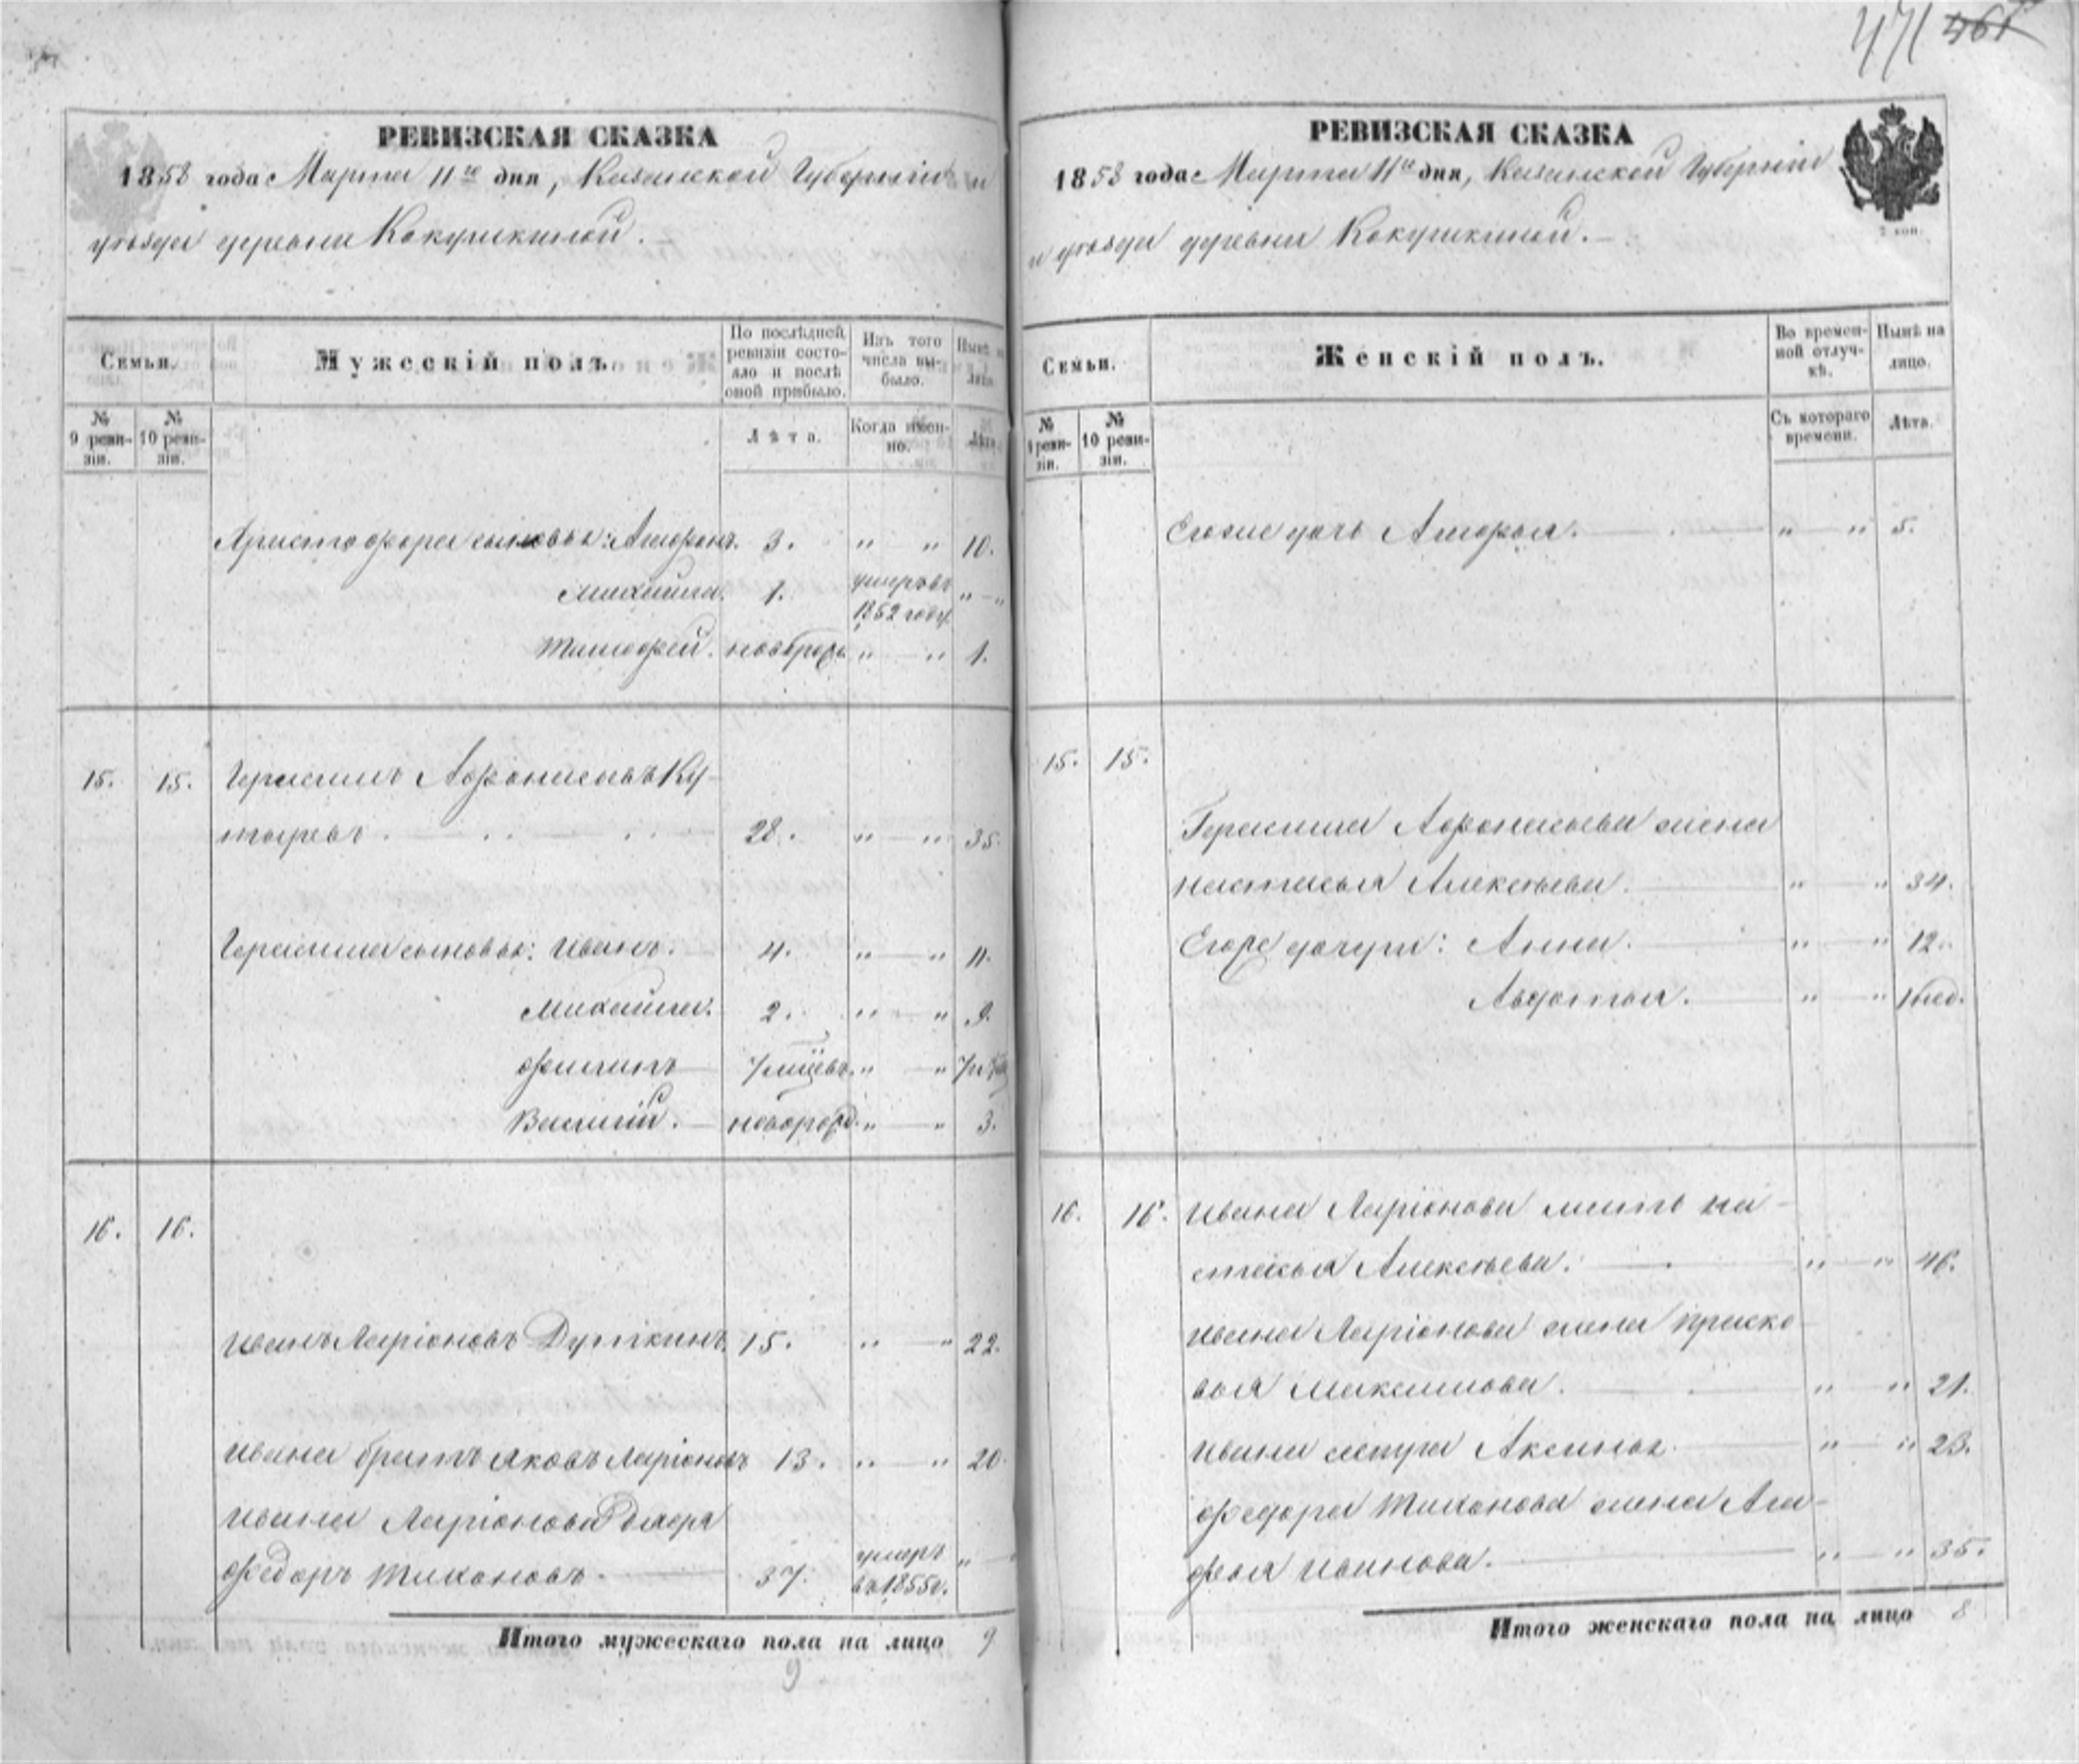 471 461
РЕВИЗСКАЯ СКАЗКА
1858 года Марта 11го дня, Казанской Губерніи и
уѣзда деревни Кокушкиной.
Семьи.
Мужескій полъ.
По послѣдней ревизіи состояло и послѣ оной прибыло.
Изъ того числа выбыло.
Нынѣ на лицо.
№ 9 ревизіи.
№ 10 ревизіи.
Лѣта.
Когда именно.
Лѣта.
Аристофора сыновья: 3. " " 10.
Михайла. 1. умеръ въ 1852 году. " "
Тимофей. новорож. " " 1.
15. 15. Герасимъ Афонасьевъ Ку-
тыревъ. 28. " " 35.
Герасима сыновья: Иванъ. 4. " " 11.
Михайла. 2. " " 9.
Филипъ 7 мѣцевъ. " "
Василій. новорожд. " " 3.
16. 16.
Иванъ Ларіоновъ Дуткинъ. 15. " " 22.
Ивана братъ Яковъ Ларіоновъ 13. " " 20.
Ивана Ларіонова дядя
Федоръ Тихоновъ. 37. умеръ въ 1855г. "
Итого мужескаго пола на лицо 9
9
РЕВИЗСКАЯ СКАЗКА
1858 года Марта 11го дня, Казанской Губерніи
и уѣзда деревни Кокушкиной.
2 коп.
Семьи.
Женскій полъ.
Во временной отлучкѣ.
Нынѣ на лицо.
№ 9 ревизіи.
№ 10 ревизіи.
Съ котораго времени.
Лѣта.
Егоже дочь " " 5.
15. 15.
Герасима Афонасьева жена
Настасья Алексѣева. " " 34.
Егоже дочери: Анна. " " 12.
Авдотья. " " 1 нед.
16. 16. Ивана Ларіонова мать На-
стасья Алексѣева. " " 46.
Ивана Ларіонова жена Приско-
вья Максимова. " " 21.
Ивана сестра Аксинья " " 23.
Федора Тихонова жена Ага-
фья Иванова. " " 35.
Итого женскаго пола на лицо 8